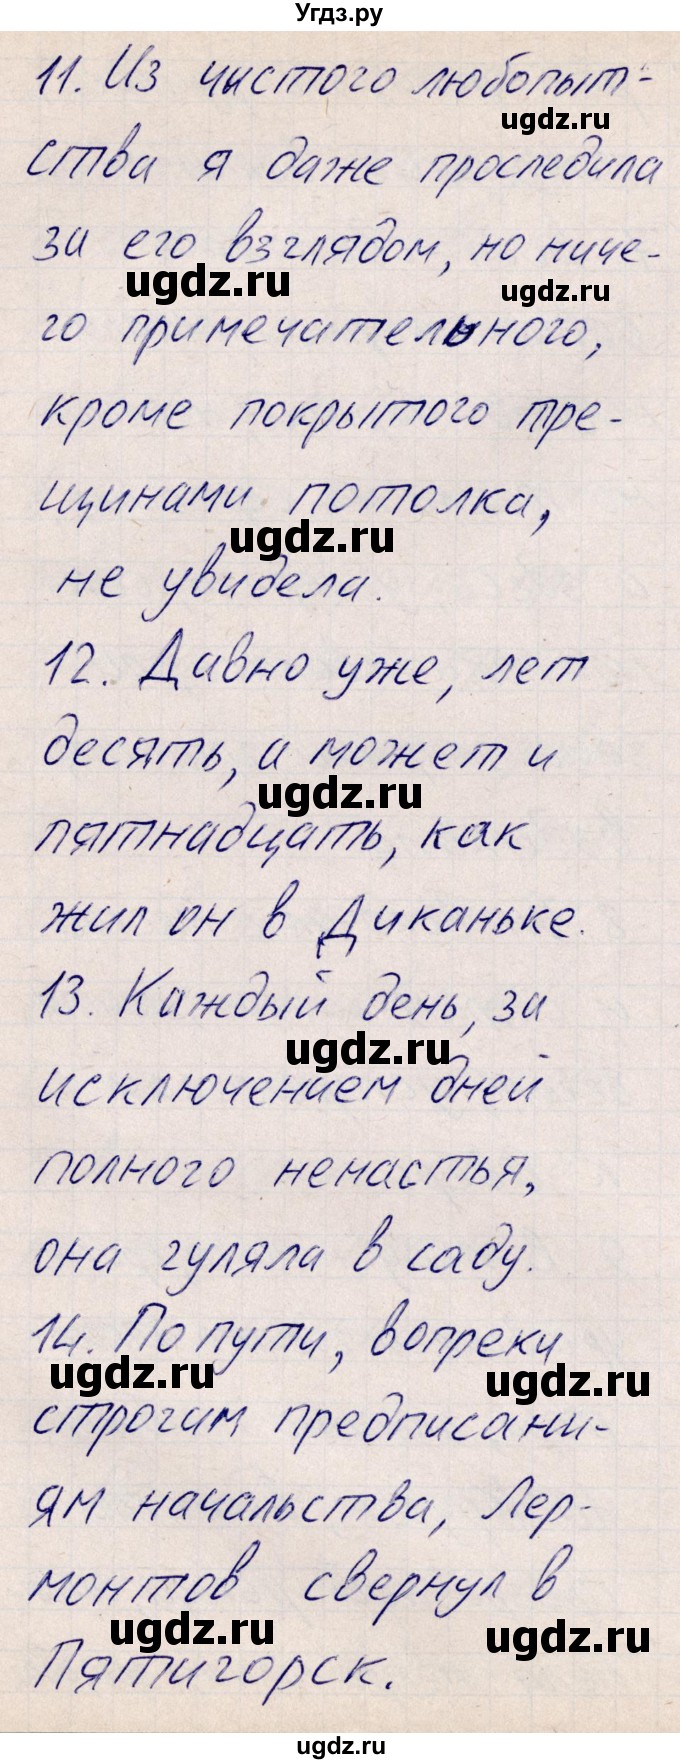 Угдз.ру
11. Из чистого любопыт-
ugdz.ru
ства я даже проследила
за его взглядом, но ниче-
ugdz.ru
ugdz.ru
го примечательного,
кроме покрытого тре-
щинами потолка,
ugdz.ru
не увидела.
12. Давно уже, лет
десять, а может и
ugdz.ru
пятнадцать, как
жил он в Диканьке.
13. Каждый день, за
ugdz.ru
исключением дней
полного ненастья,
она гуляла в саду.
14. По пути, вопреки
ugdz.ru
ugdz.ru
строгим предписани-
ям начальства, Лер-
монтов свернул в
ugdz.ru
ugdz.ru
Пятигорск.
ugdz.ru